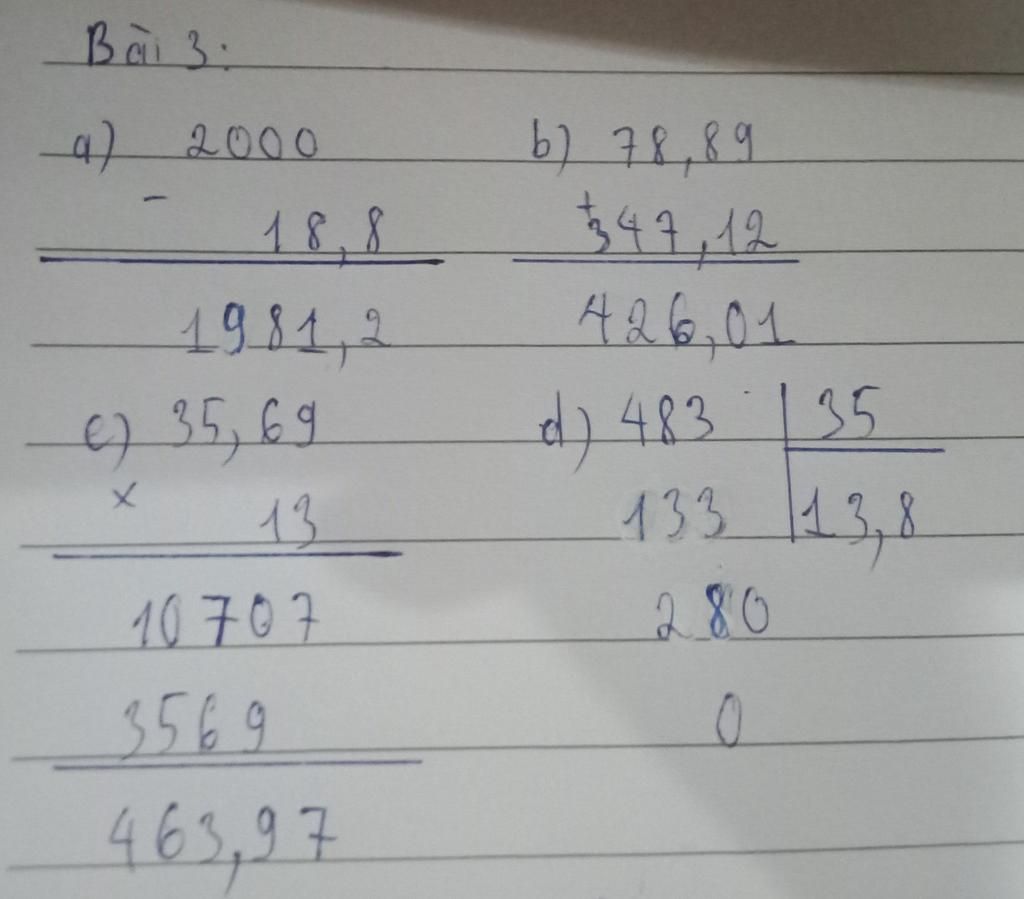 Bài 3:
a) 2000 b) 78,89
- +
18,8 347,12
1981,2 426,01
c) 35,69 d) 483 35
x 13 133 13,8
10707 280
3569 0
463,97